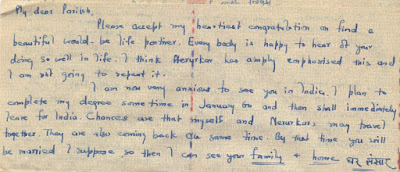 My dear Parikh,
Please accept my heartiest congratulation on find a
beautiful would-be life partner. Every body is happy to hear of your
doing so well in life. I think Nerurkar has amply emphasised this and
I am not going to repeat it.
I am now very anxious to see you in India. I plan to
complete my degree some time in January 60 and then shall immediately
leave for India. Chances are that myself and Nerurkar may travel
together. They are also coming back at same time. By that time you will
be married I suppose so then I can see your family & home घर संसार